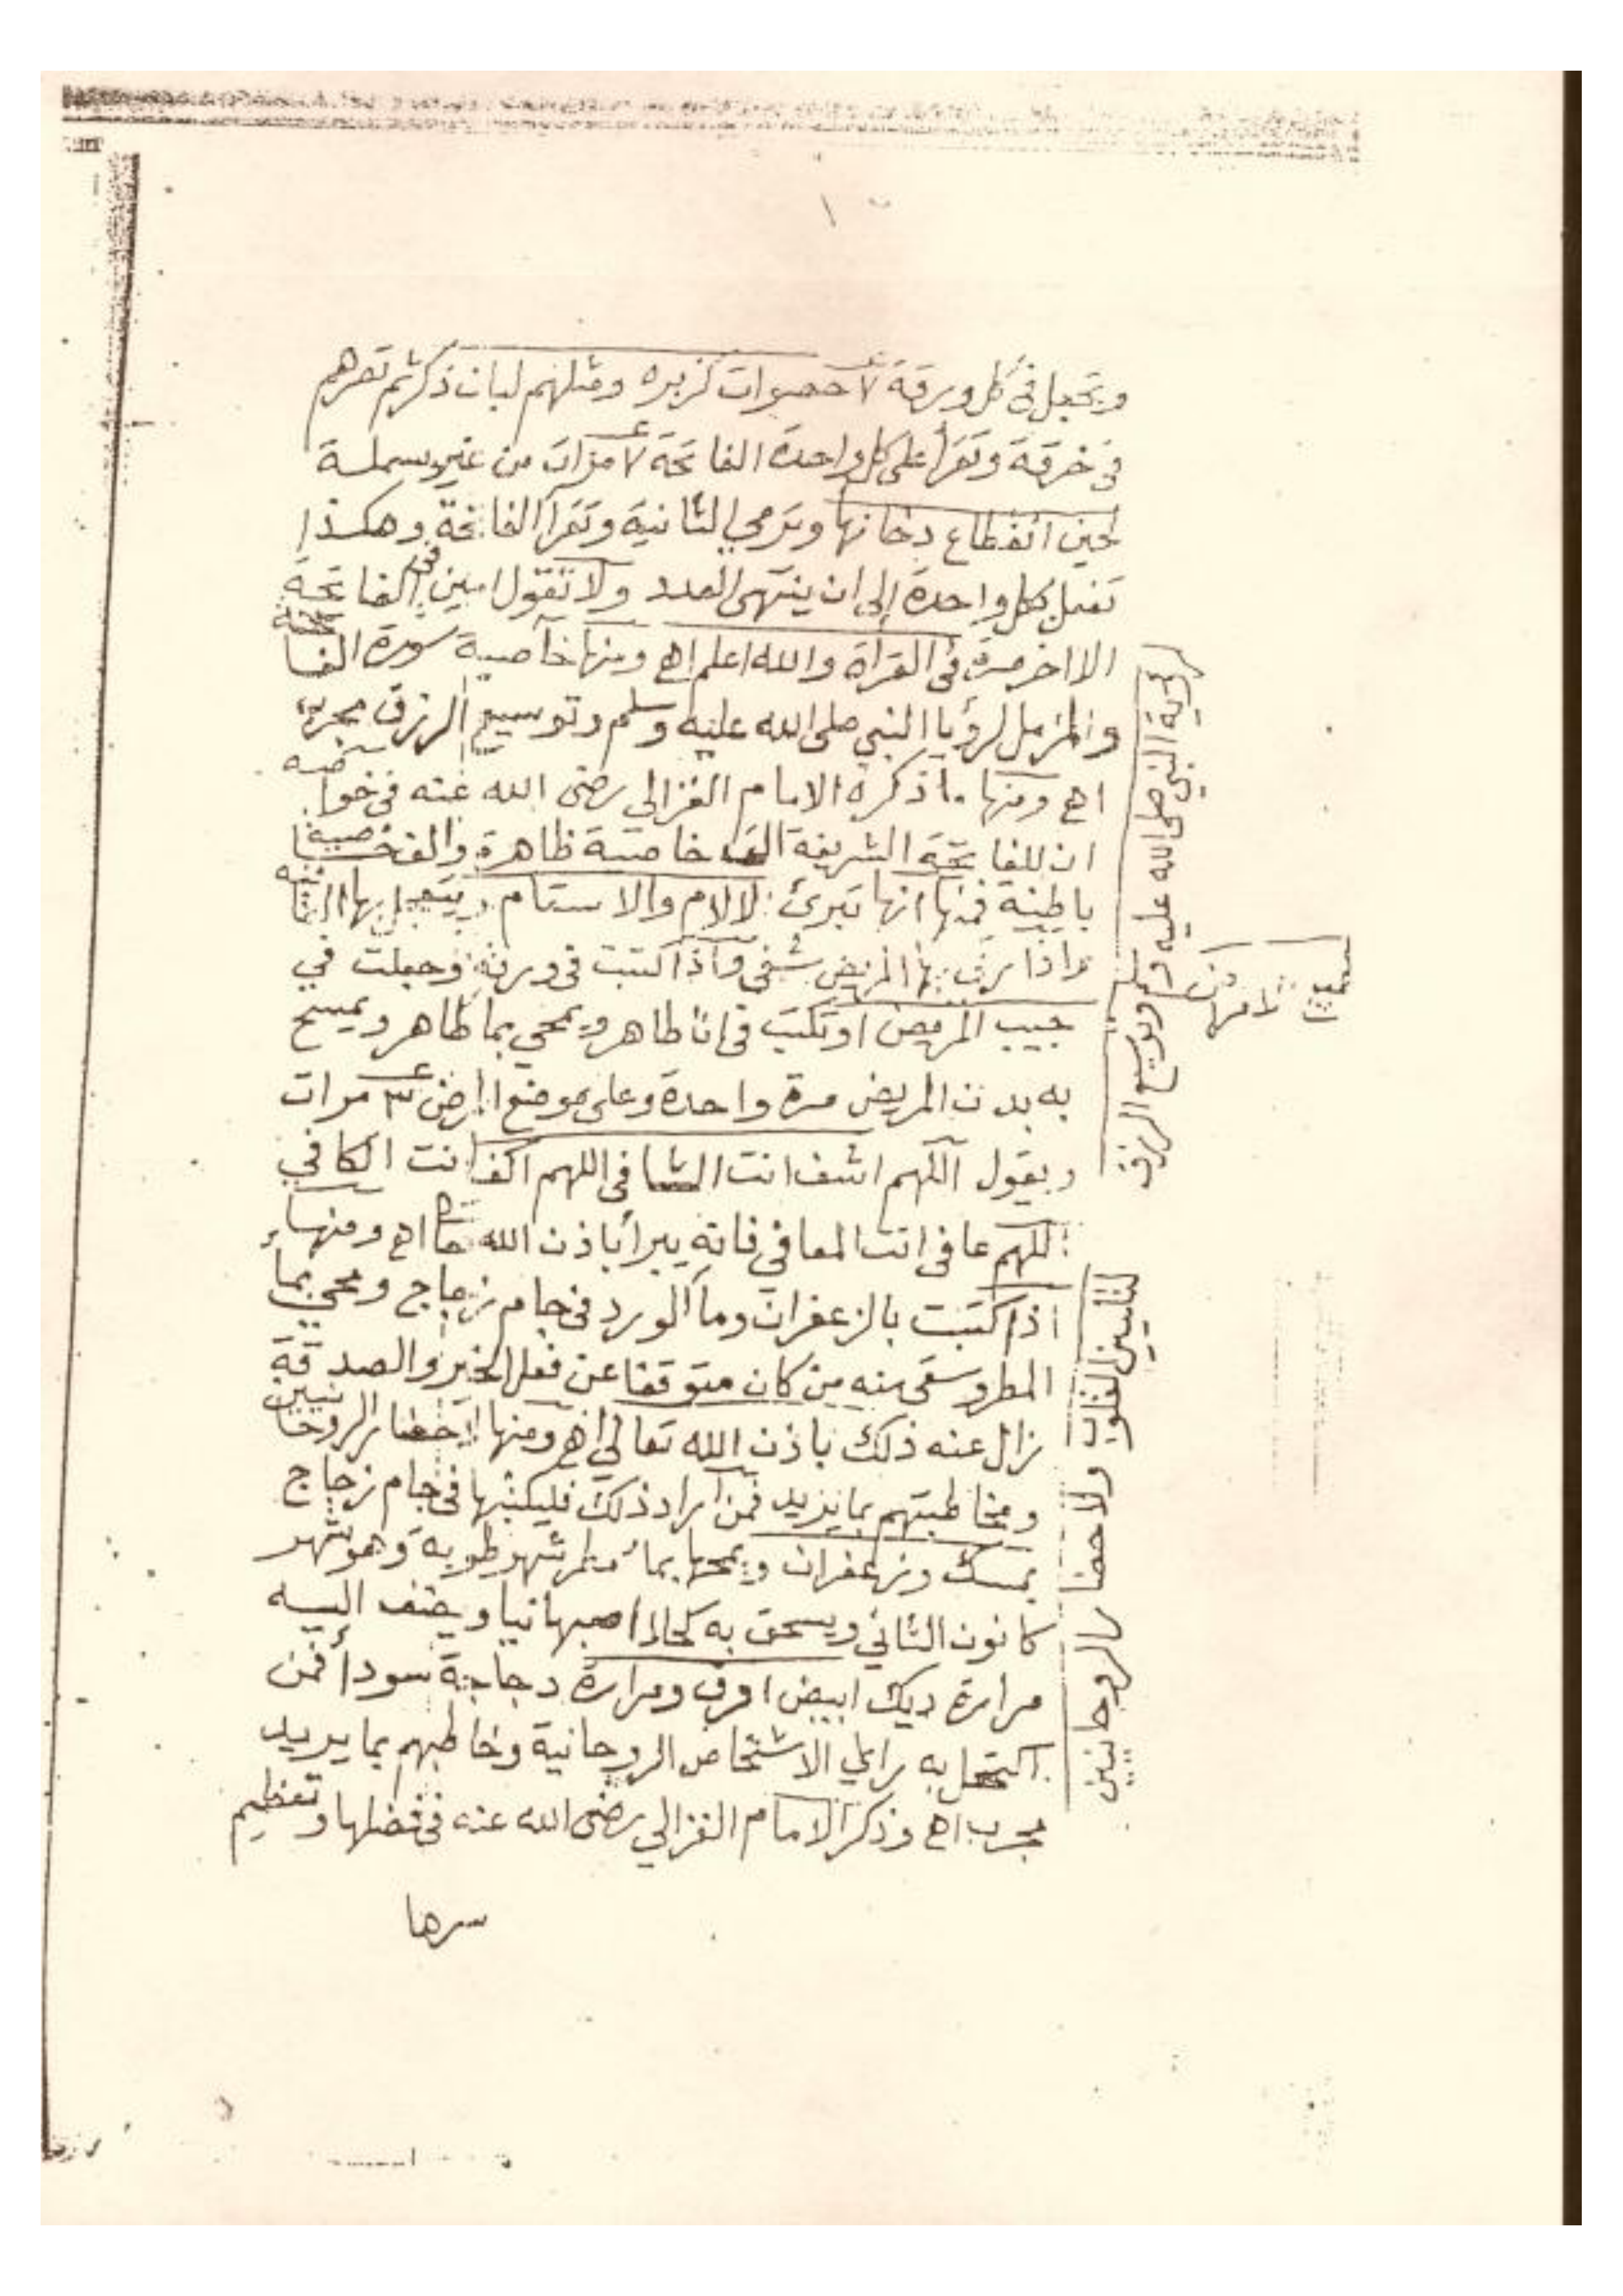 وتجعل في كل ورقة ٧ حصوات كزبره ومثلهم لبان ذكر ثم تصرهم
في خرقة وتقرأ على كل واحدة الفاتحة ٧ مرات من غير بسملة
لحين انقطاع دخانها وترمي الثانية وتقرأ الفاتحة وهكذا
تفعل بكل واحدة إلى ان ينتهى العدد ولا تقول امين في الفاتحة
الا اخر مرة في القرأة والله اعلم اهـ ومنها خاصية سورة الفاتحة
والمزمل لرؤيا النبي صلى الله عليه وسلم وتوسيع الرزق مجرب
اهـ ومنها ما ذكره الامام الغزالي رضى الله عنه في خواصه
ان للفاتحة الشريفة الف خاصية ظاهرة والف خاصية
باطنية فمنها انها تبرئ الالام والاسقام ويتعجل بها الشفا
واذا رقى بها المريض شفى واذا كتبت في ورقة وجعلت في
جيب المريض او تكتب في انا طاهر ويمحي بما طاهر ويمسح
به بدن المريض مرة واحدة وعلى موضع المرض ٣ مرات
ويقول اللهم اشف انت الشافى اللهم اكف انت الكافي
اللهم عافى انت المعافي فانه يبرأ باذن الله اهـ ومنها
اذا كتبت بالزعفران وما الورد في جام زجاج ومحي بماء
المطر وسقى منه من كان متوقفا عن فعل الخير والصدقة
زال عنه ذلك باذن الله تعالي اهـ ومنها لاحضار الروحانيين
ومخاطبتهم بما يريد فمن اراد ذلك فليكتبها في جام زجاج
بمسك وزعفران ويمحها بماء مطر شهر طوبه وهو شهر
كانون الثاني ويسحق به كحلا اصبهانيا ويضف اليه
مرارة ديك ابيض افرق ومرارة دجاجة سودأ فمن
اكتحل به راي الاشخاص الروحانية وخاطبهم بما يريد
مجرب اهـ وذكر الامام الغزالي رضى الله عنه في فضلها وتعظيم
سرها
رؤية النبي صلى الله عليه وسلم وتوسيع الرزق
لتليين القلوب ولاحضار الروحانيين